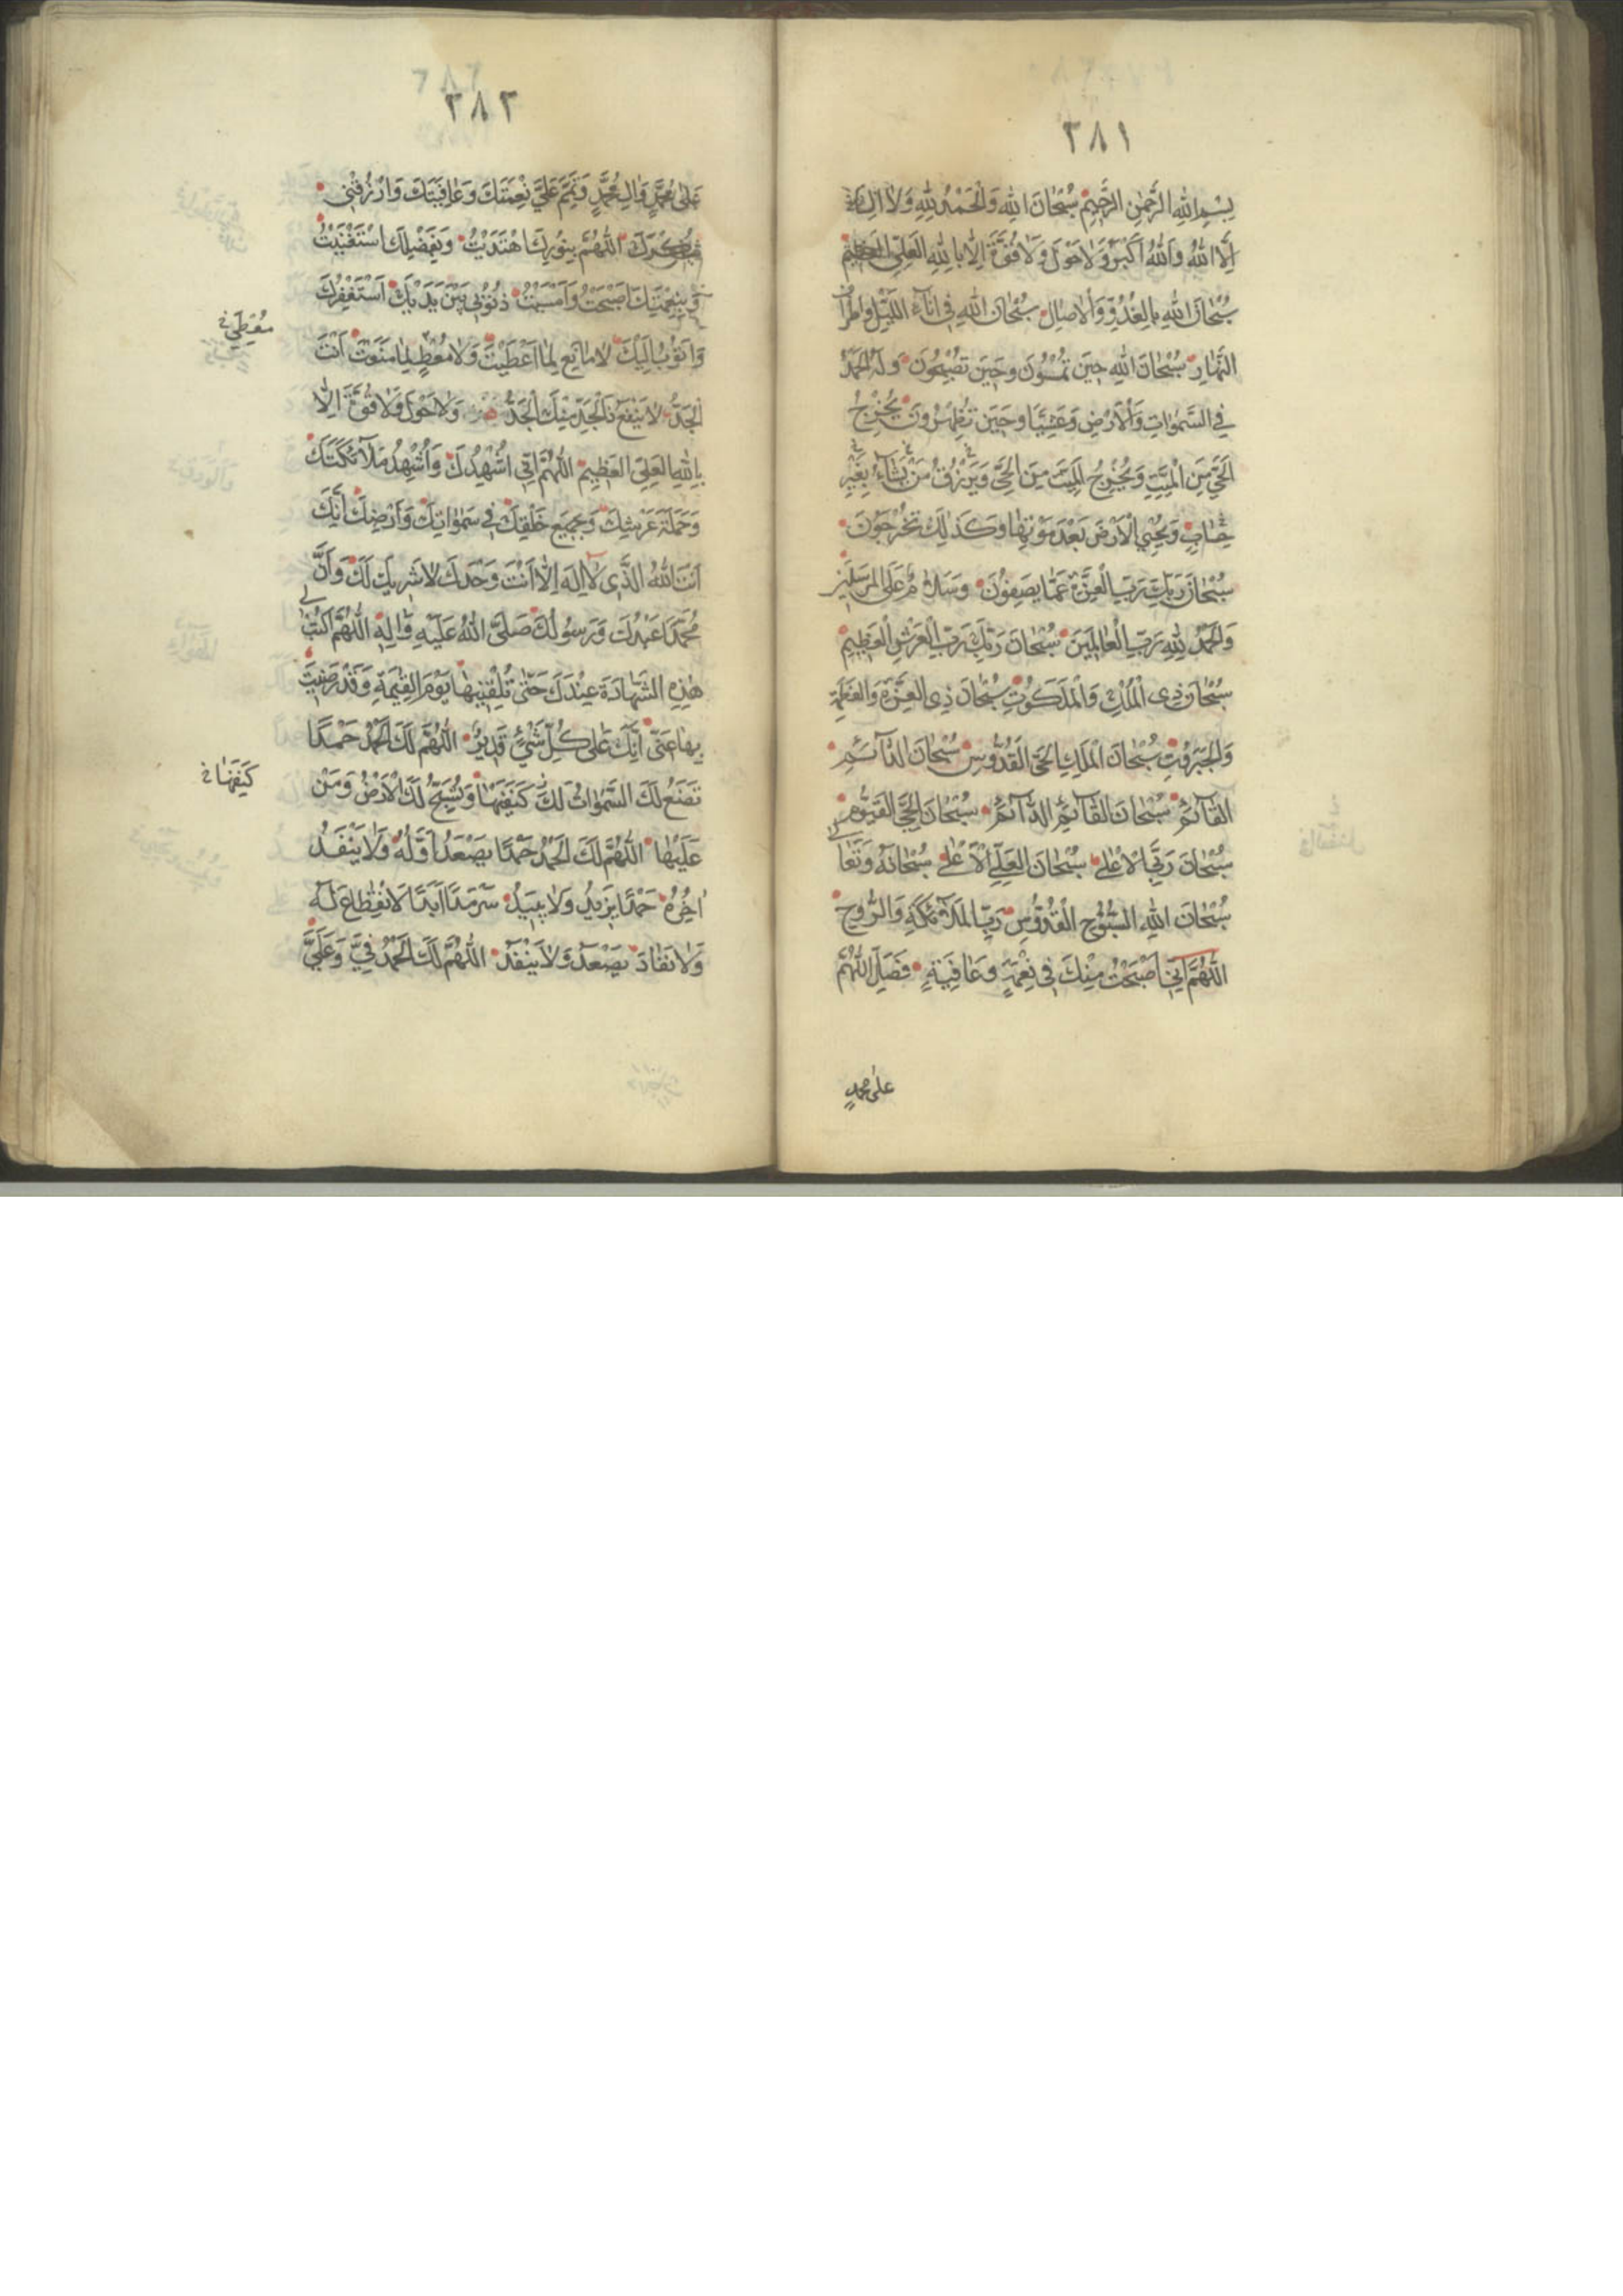 ٣٨١
بِسْمِ اللهِ الرَّحْمٰنِ الرَّحِيمِ سُبْحَانَ اللهِ وَالْحَمْدُ لِلّٰهِ وَلَا اِلٰهَ
اِلَّا اللهُ وَاللهُ اَكْبَرُ وَلَا حَوْلَ وَلَا قُوَّةَ اِلَّا بِاللهِ الْعَلِيِّ الْعَظِيمِ
سُبْحَانَ اللهِ بِالْغُدُوِّ وَالْاٰصَالِ سُبْحَانَ اللهِ فِي اٰنَاءِ اللَّيْلِ وَاَطْرَافِ
النَّهَارِ سُبْحَانَ اللهِ حِينَ تُمْسُونَ وَحِينَ تُصْبِحُونَ وَلَهُ الْحَمْدُ
فِي السَّمٰوَاتِ وَالْاَرْضِ وَعَشِيًّا وَحِينَ تُظْهِرُونَ يُخْرِجُ
الْحَيَّ مِنَ الْمَيِّتِ وَيُخْرِجُ الْمَيِّتَ مِنَ الْحَيِّ وَيَرْزُقُ مَنْ يَشَاءُ بِغَيْرِ
حِسَابٍ وَيُحْيِي الْاَرْضَ بَعْدَ مَوْتِهَا وَكَذٰلِكَ تُخْرَجُونَ
سُبْحَانَ رَبِّكَ رَبِّ الْعِزَّةِ عَمَّا يَصِفُونَ وَسَلَامٌ عَلَى الْمُرْسَلِينَ
وَالْحَمْدُ لِلّٰهِ رَبِّ الْعَالَمِينَ سُبْحَانَ رَبِّكَ رَبِّ الْعَرْشِ الْعَظِيمِ
سُبْحَانَ ذِي الْمُلْكِ وَالْمَلَكُوتِ سُبْحَانَ ذِي الْعِزَّةِ وَالْعَظَمَةِ
وَالْجَبَرُوتِ سُبْحَانَ الْمَلِكِ الْحَيِّ الْقُدُّوسِ سُبْحَانَ الدَّائِمِ
الْقَائِمِ سُبْحَانَ الْقَائِمِ الدَّائِمِ سُبْحَانَ الْحَيِّ الْقَيُّومِ
سُبْحَانَ رَبِّيَ الْاَعْلٰى سُبْحَانَ الْعَلِيِّ الْاَعْلٰى سُبْحَانَهُ وَتَعَالٰى
سُبْحَانَ اللهِ السُّبُّوحِ الْقُدُّوسِ رَبِّ الْمَلَائِكَةِ وَالرُّوحِ
اللّٰهُمَّ اِنِّي اَصْبَحْتُ مِنْكَ فِي نِعْمَةٍ وَعَافِيَةٍ فَصَلِّ اللّٰهُمَّ
على محمدٍ
٣٨٢
عَلٰى مُحَمَّدٍ وَاٰلِ مُحَمَّدٍ وَتَمِّمْ عَلَيَّ نِعْمَتَكَ وَعَافِيَتَكَ وَارْزُقْنِي
شُكْرَكَ اللّٰهُمَّ بِنُورِكَ اهْتَدَيْتُ وَبِفَضْلِكَ اسْتَغْنَيْتُ
وَبِنِعْمَتِكَ اَصْبَحْتُ وَاَمْسَيْتُ ذُنُوبِي بَيْنَ يَدَيْكَ اَسْتَغْفِرُكَ
وَاَتُوبُ اِلَيْكَ لَا مَانِعَ لِمَا اَعْطَيْتَ وَلَا مُعْطٍ لِمَا مَنَعْتَ اَنْتَ
مُعْطِيَ
الْجَدُّ لَا يَنْفَعُ ذَا الْجَدِّ مِنْكَ الْجَدُّ وَلَا حَوْلَ وَلَا قُوَّةَ اِلَّا
بِاللهِ الْعَلِيِّ الْعَظِيمِ اللّٰهُمَّ اِنِّي اُشْهِدُكَ وَاُشْهِدُ مَلَائِكَتَكَ
وَحَمَلَةَ عَرْشِكَ وَجَمِيعَ خَلْقِكَ فِي سَمٰوَاتِكَ وَاَرْضِكَ اَنَّكَ
اَنْتَ اللهُ الَّذِي لَا اِلٰهَ اِلَّا اَنْتَ وَحْدَكَ لَا شَرِيكَ لَكَ وَاَنَّ
مُحَمَّدًا عَبْدُكَ وَرَسُولُكَ صَلَّى اللهُ عَلَيْهِ وَاٰلِهِ اللّٰهُمَّ اكْتُبْ لِي
هٰذِهِ الشَّهَادَةَ عِنْدَكَ حَتّٰى تُلَقِّنِيهَا يَوْمَ الْقِيٰمَةِ وَقَدْ رَضِيتَ
بِهَا عَنِّي اِنَّكَ عَلٰى كُلِّ شَيْءٍ قَدِيرٌ اللّٰهُمَّ لَكَ الْحَمْدُ حَمْدًا
تَضَعُ لَكَ السَّمٰوَاتُ لَكَ كَنَفَيْهَا وَتُسَبِّحُ لَكَ الْاَرْضُ وَمَنْ
كَنَفَهَا
عَلَيْهَا اللّٰهُمَّ لَكَ الْحَمْدُ حَمْدًا يَصْعَدُ اَوَّلُهُ وَلَا يَنْفَدُ
اٰخِرُهُ حَمْدًا يَزِيدُ وَلَا يَبِيدُ سَرْمَدًا اَبَدًا لَا انْقِطَاعَ لَهُ
وَلَا نَفَادَ يَصْعَدُ وَلَا يَنْفَدُ اللّٰهُمَّ لَكَ الْحَمْدُ فِيَّ وَعَلَيَّ